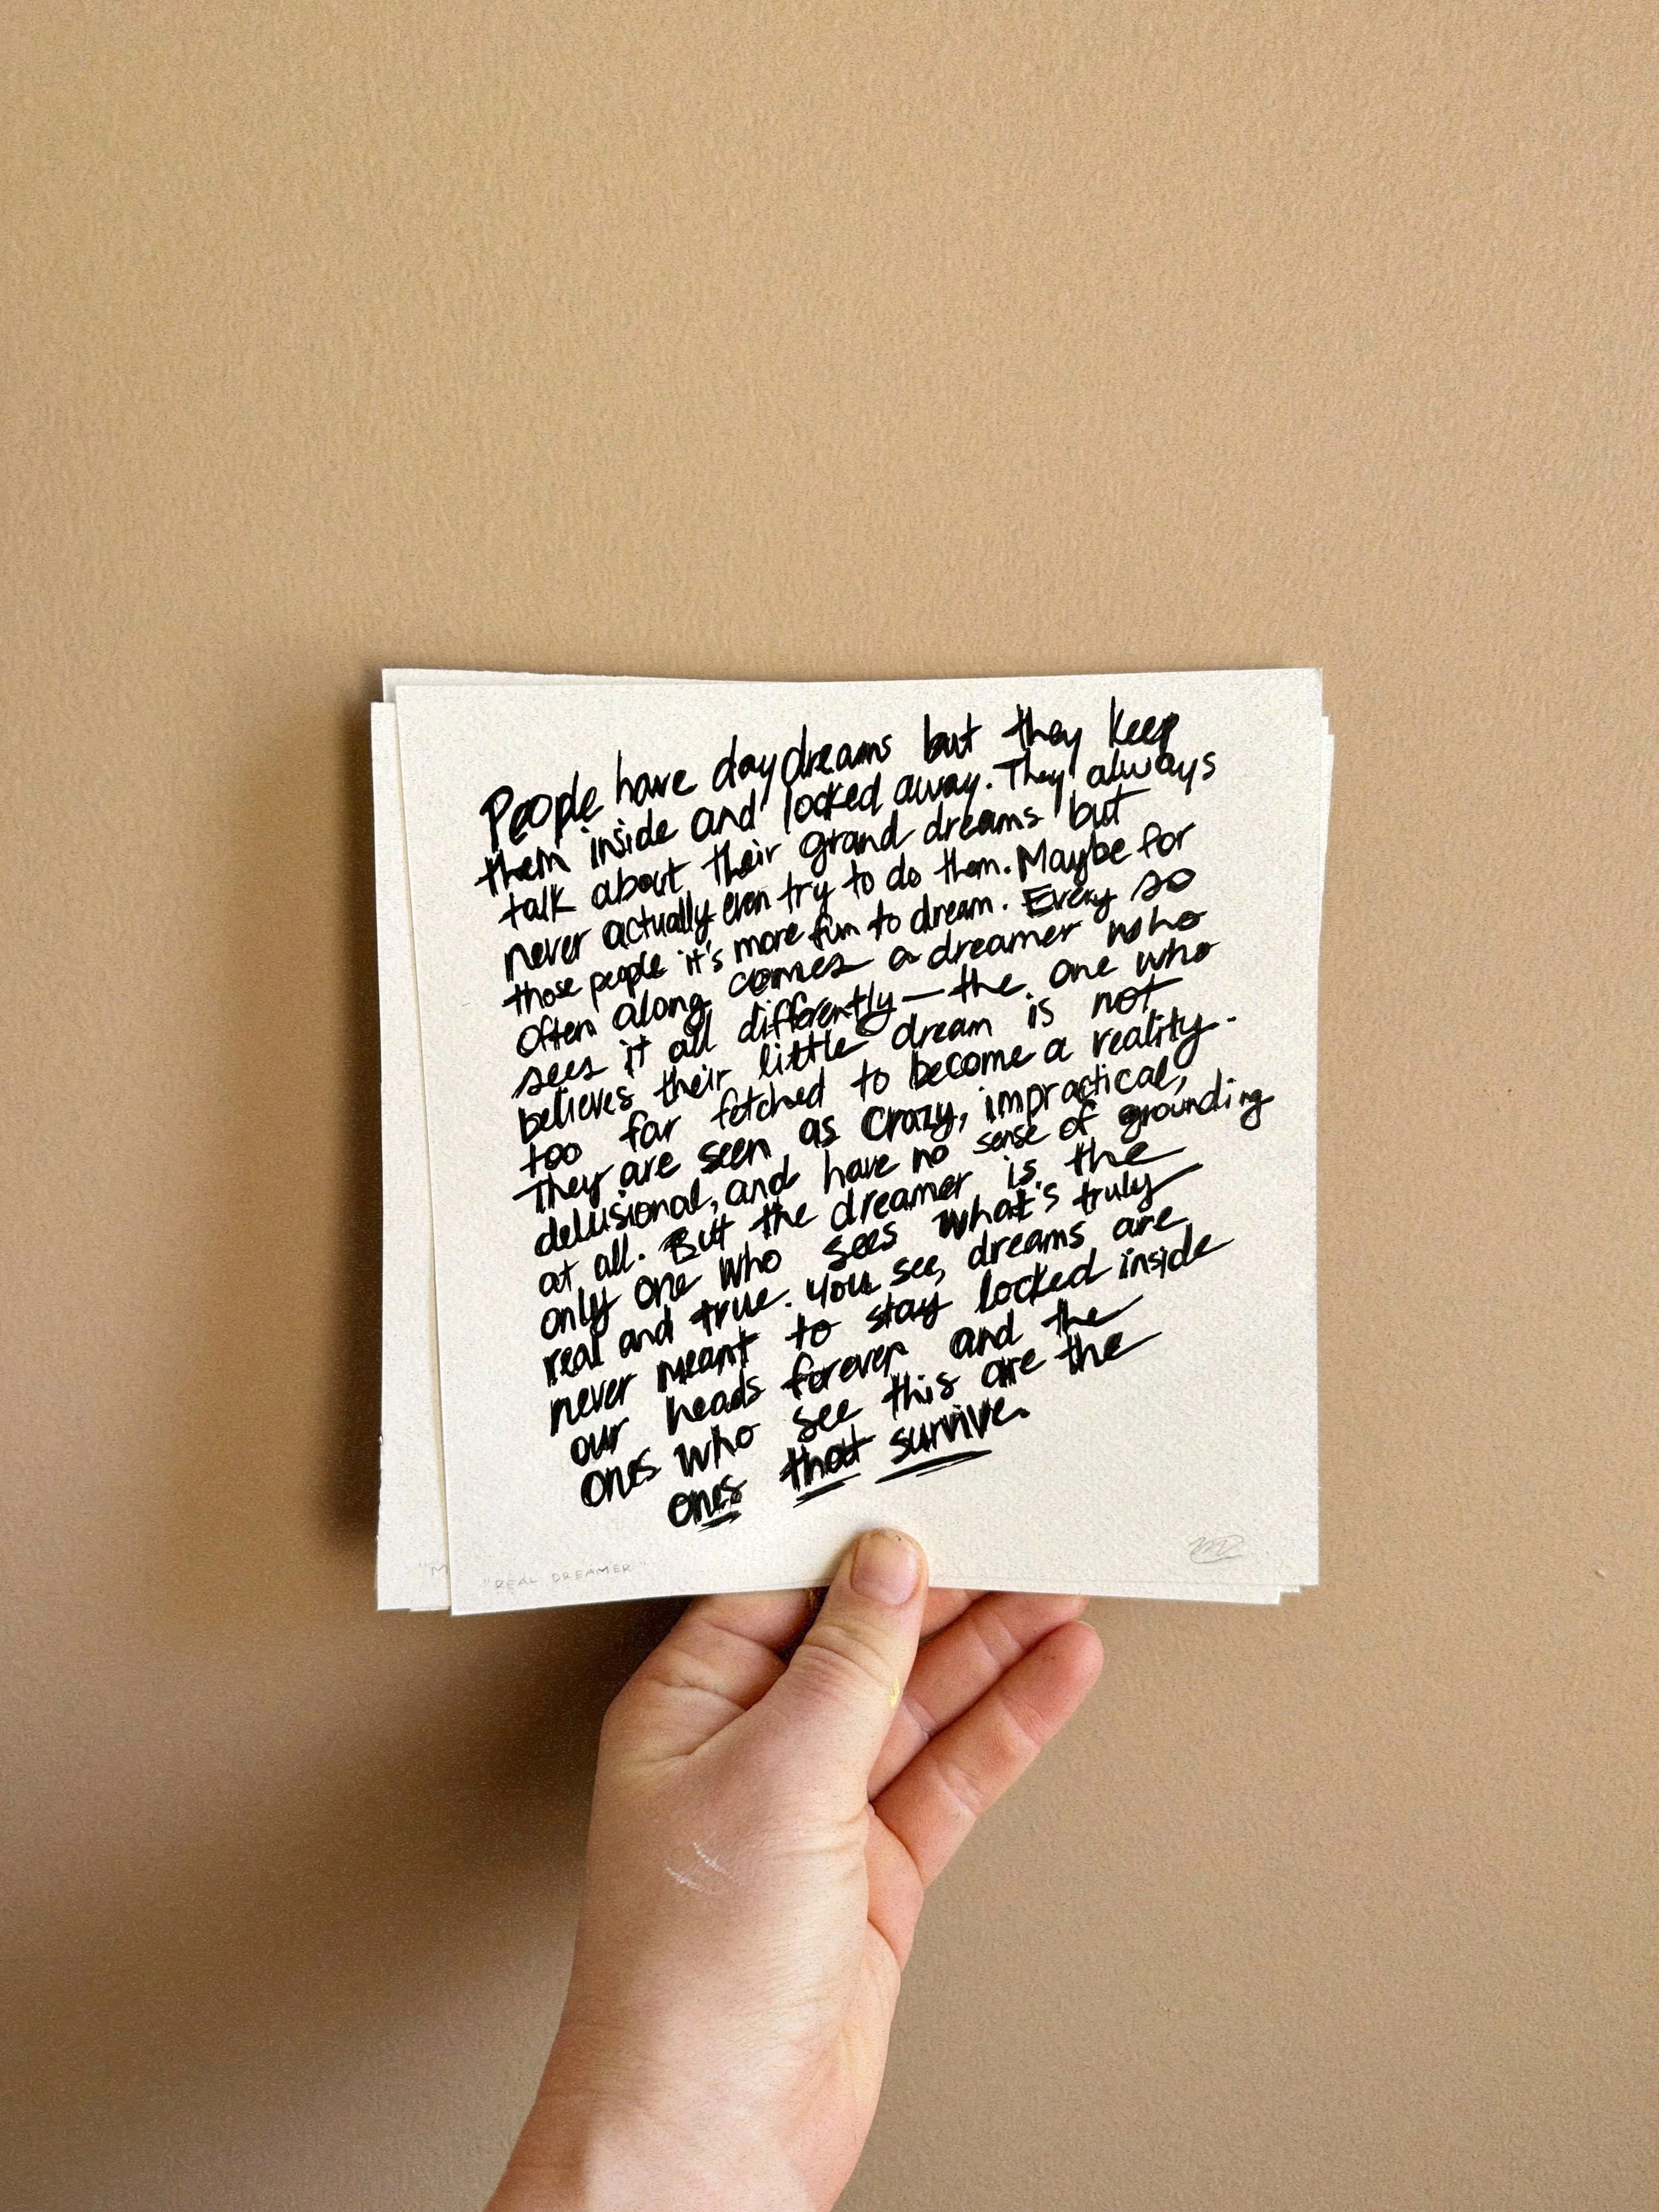 People have daydreams but they keep
them inside and locked away. They always
talk about their grand dreams but
never actually even try to do them. Maybe for
those people it's more fun to dream. Every so
often along comes a dreamer who
sees it all differently — the one who
believes their little dream is not
too far fetched to become a reality.
They are seen as crazy, impractical,
delusional, and have no sense of grounding
at all. But the dreamer is the
only one who sees what's truly
real and true. You see, dreams are
never meant to stay locked inside
our heads forever and the
ones who see this are the
ones that survive.
"M
"REAL DREAMER"